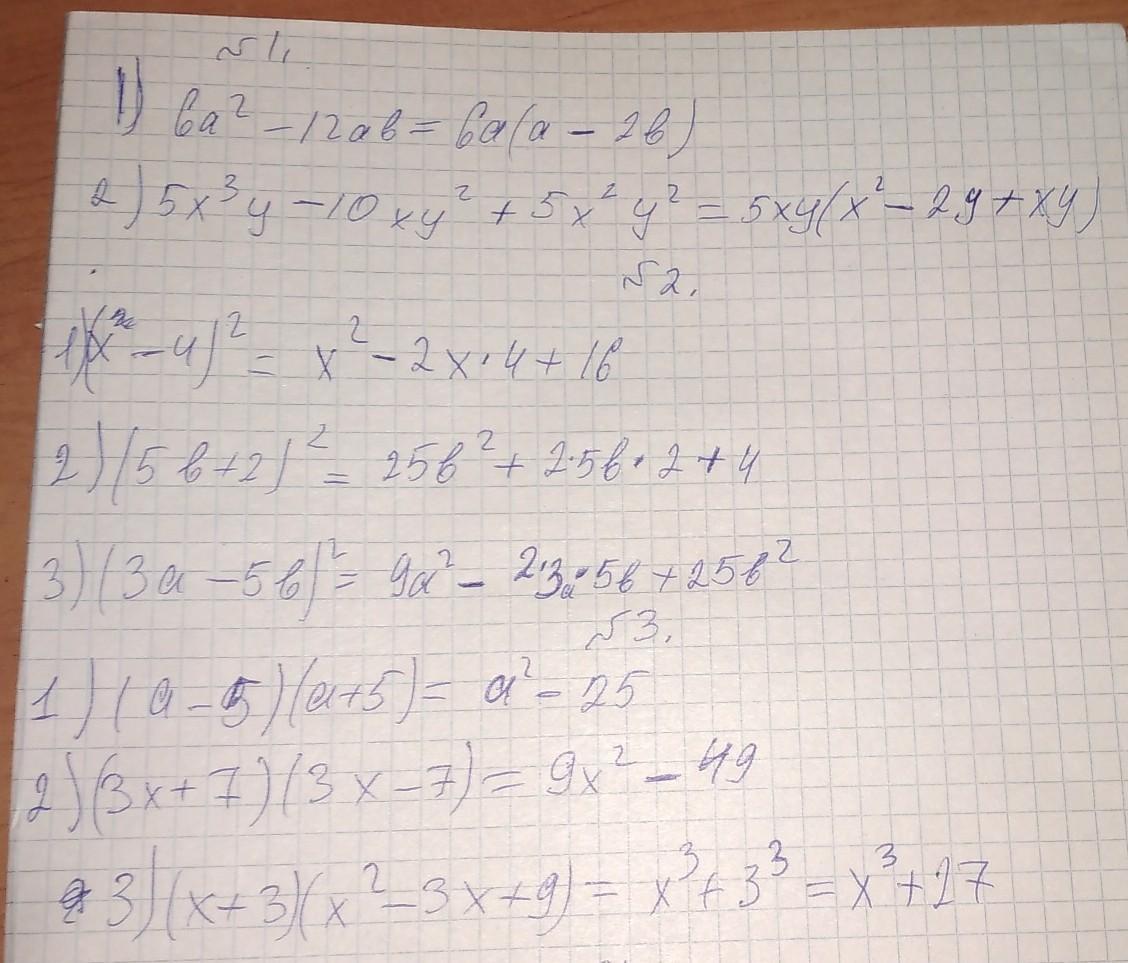 №1.
1) 6a² - 12ab = 6a(a - 2b)
2) 5x³y - 10xy² + 5x²y² = 5xy(x² - 2y + xy)
№2.
1) (x - 4)² = x² - 2x·4 + 16
2) (5b + 2)² = 25b² + 2·5b·2 + 4
3) (3a - 5b)² = 9a² - 2·3a·5b + 25b²
№3.
1) (a - 5)(a + 5) = a² - 25
2) (3x + 7)(3x - 7) = 9x² - 49
3) (x + 3)(x² - 3x + 9) = x³ + 3³ = x³ + 27